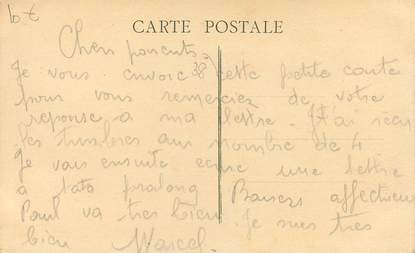 bt
CARTE POSTALE
Chers parents
38
Je vous envoie cette petite carte
pour vous remercier de votre
reponse a ma lettre. J'ai reçu
les timbres au nombre de 4
Je vais ensuite ecrire une lettre
a tata
Baisers affectueux
Paul va tres bien Je suis tres
bien Marcel